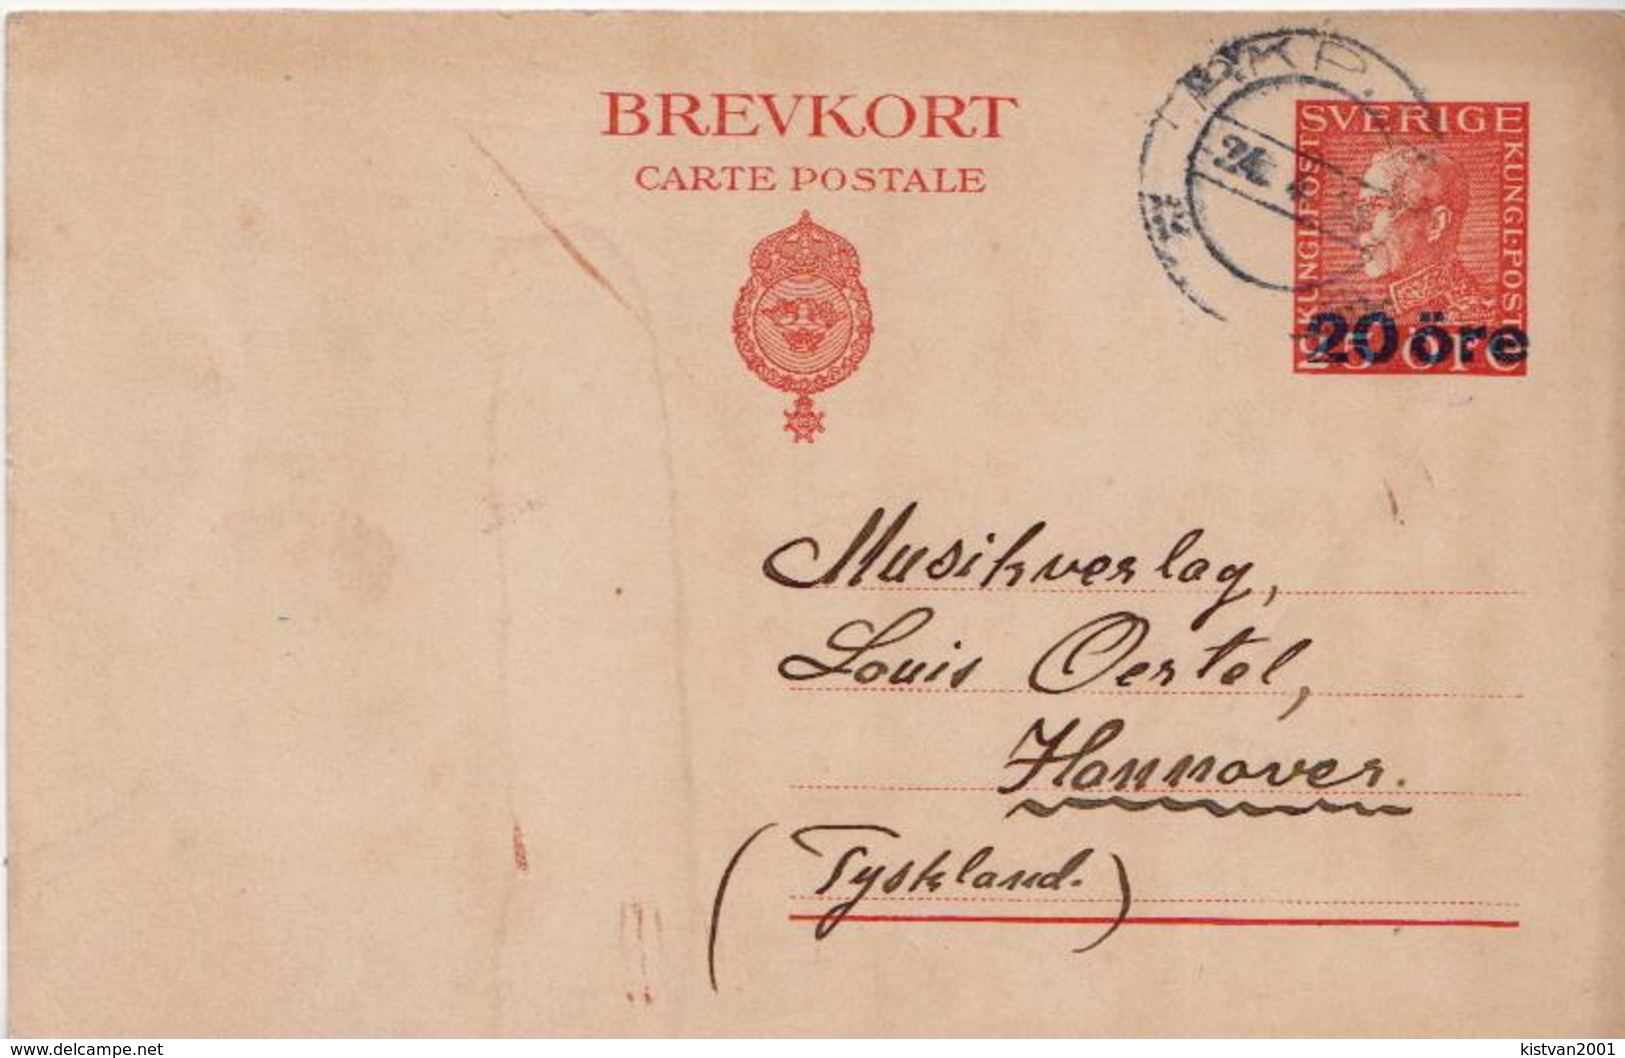 BREVKORT
CARTE POSTALE
SVERIGE
KUNGL·POST
KUNGL·POST
25 ÖRE
20 öre
24
Musikverlag,
Louis Oertel,
Hannover.
(Tyskland.)
www.delcampe.net
kistvan2001